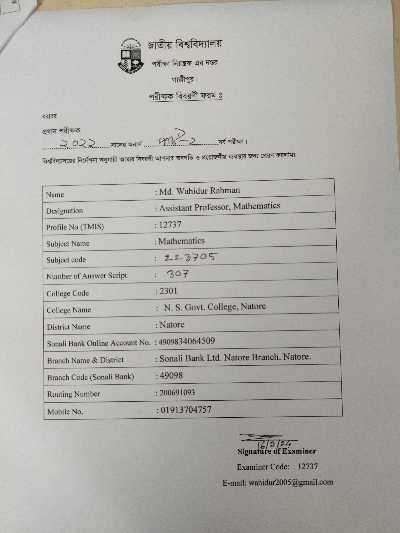 জাতীয় বিশ্ববিদ্যালয়
পরীক্ষা নিয়ন্ত্রক এর দপ্তর
গাজীপুর।
পরীক্ষক বিবরণী ফরম ঃ
বরাবর
প্রধান পরীক্ষক
2022 সালের অনার্স বর্ষ পরীক্ষা।
বিশ্ববিদ্যালয়ের নির্দেশনা অনুযায়ী আমার বিবরণী আপনার অবগতি ও প্রয়োজনীয় ব্যবস্থার জন্য প্রেরণ করলাম।
Name : Md. Wahidur Rahman
Designation : Assistant Professor, Mathematics
Profile No (TMIS) : 12737
Subject Name : Mathematics
Subject code : 223705
Number of Answer Script : 307
College Code : 2301
College Name : N. S. Govt. College, Natore
District Name : Natore
Sonali Bank Online Account No. : 4909834064509
Branch Name & District : Sonali Bank Ltd. Natore Branch, Natore.
Branch Code (Sonali Bank) : 49098
Routing Number : 200691093
Mobile No. : 01913704757
16/5/24
Signature of Examiner
Examiner Code: 12737
E-mail: wahidur2005@gmail.com